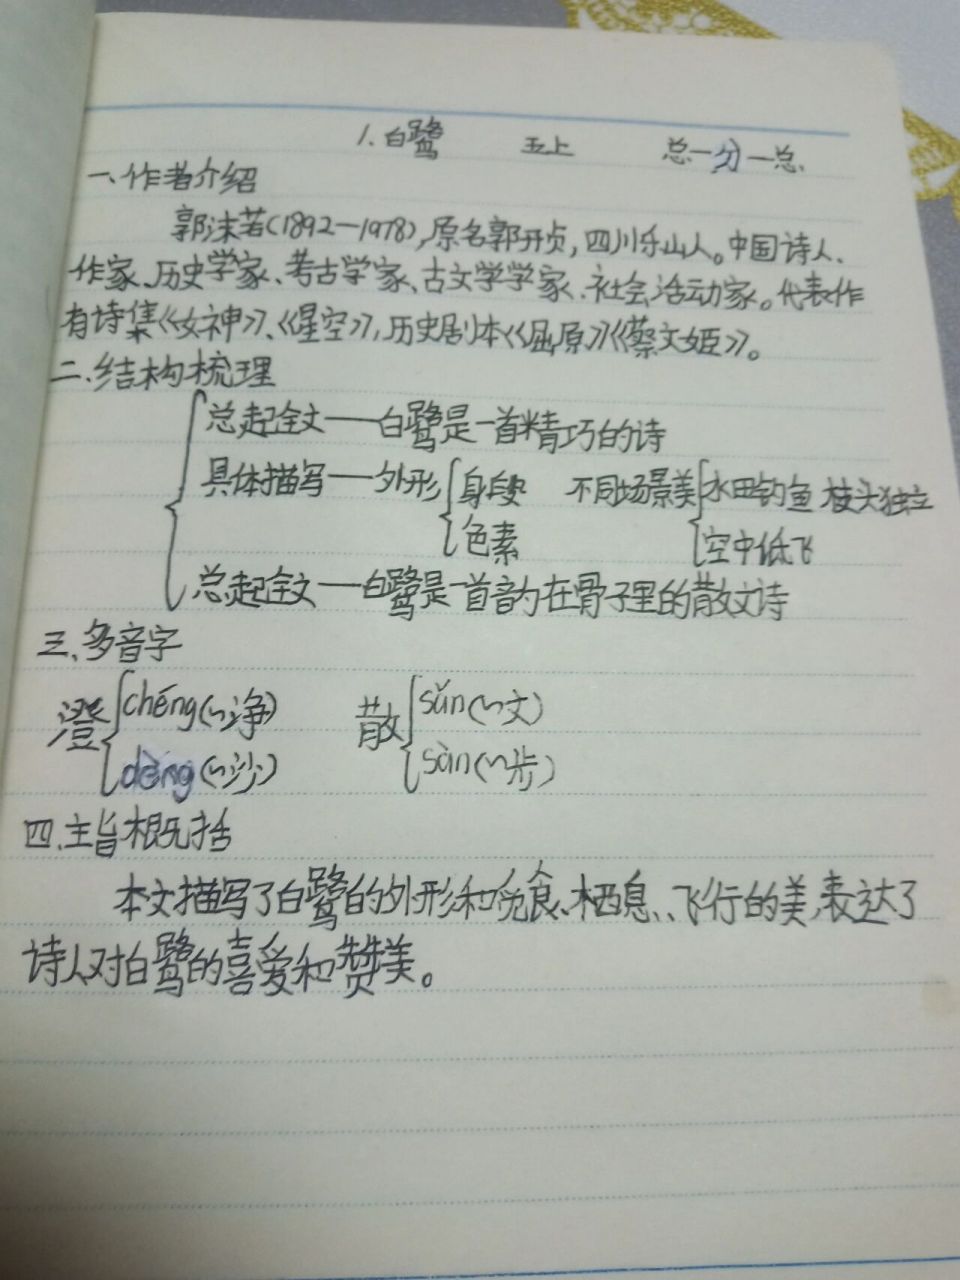 1.白鹭 五上 总一分一总.
一、作者介绍
郭沫若(1892—1978),原名郭开贞,四川乐山人。中国诗人、
作家、历史学家、考古学家、古文学学家、社会活动家。代表作
有诗集《女神》、《星空》,历史剧本《屈原》《蔡文姬》。
二、结构梳理
总起全文——白鹭是一首精巧的诗
具体描写——外形 身段 不同场景美 水田钓鱼 枝头独立
色素 空中低飞
总起全文——白鹭是一首韵在骨子里的散文诗
三、多音字
澄 chéng(~净) 散 sǎn(~文)
dèng(~沙) sàn(~步)
四、主旨概括
本文描写了白鹭的外形和觅食、栖息、飞行的美,表达了
诗人对白鹭的喜爱和赞美。